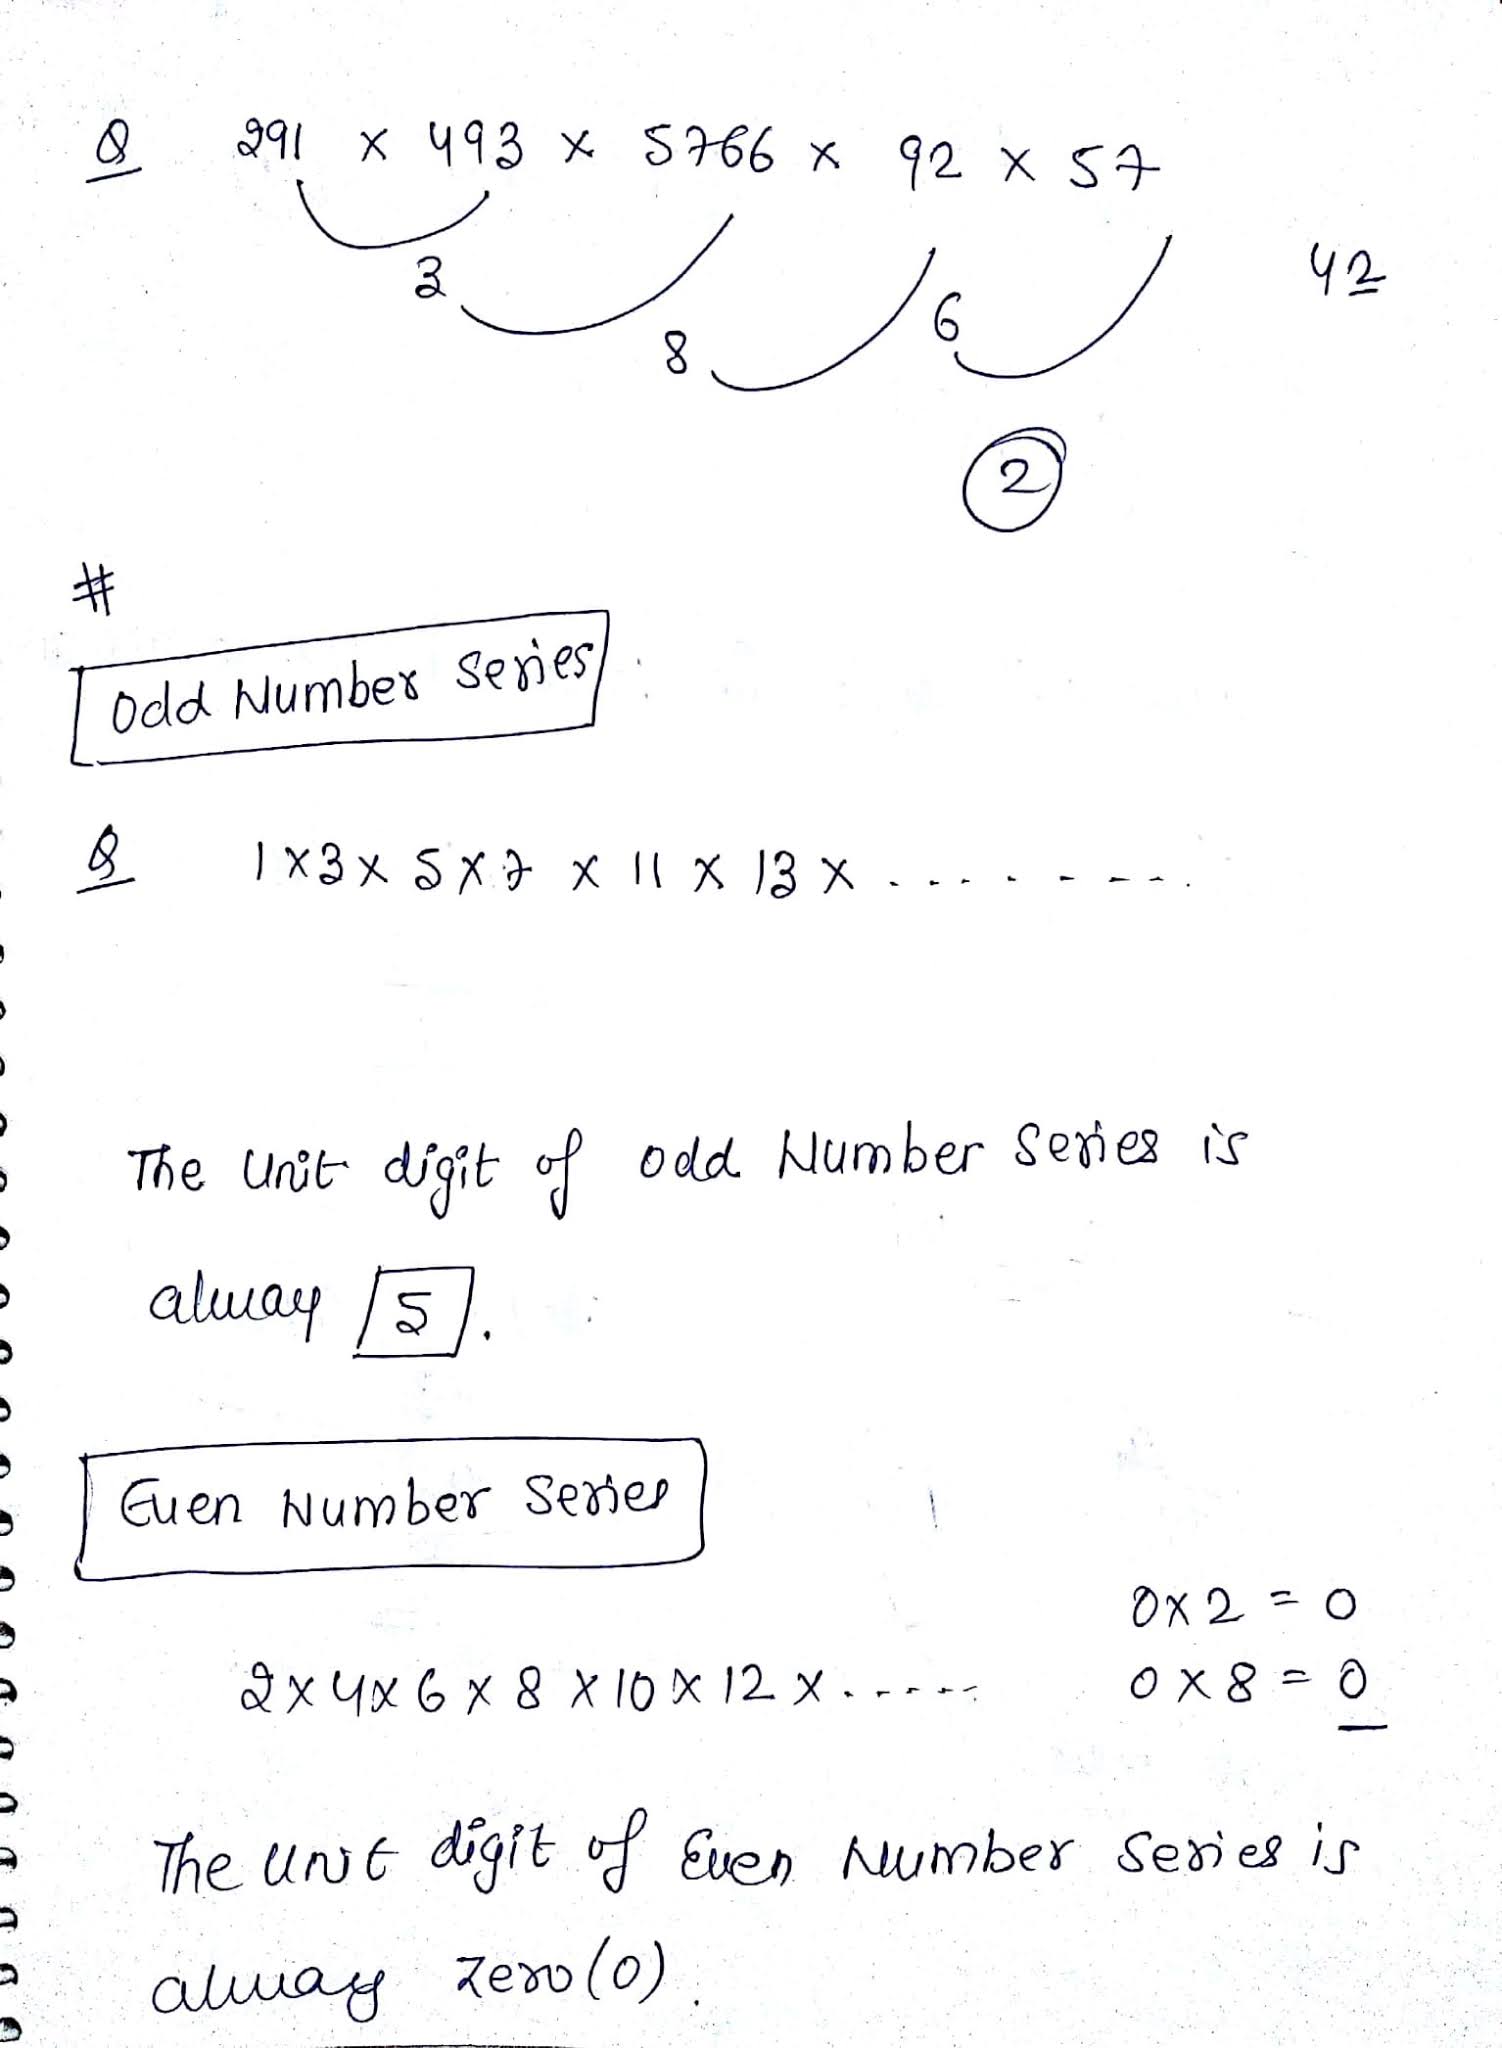 Q 291 x 493 x 5766 x 92 x 57
3 8 6 42
2
#
Odd Number Series
Q 1x3x5x7 x 11 x 13 x ........
The Unit digit of odd Number Series is
alway 5.
Even Number Series
0x2 = 0
2x4x6x8x10x12x...... 0x8 = 0
The Unit digit of Even Number Series is
alway Zero(0).